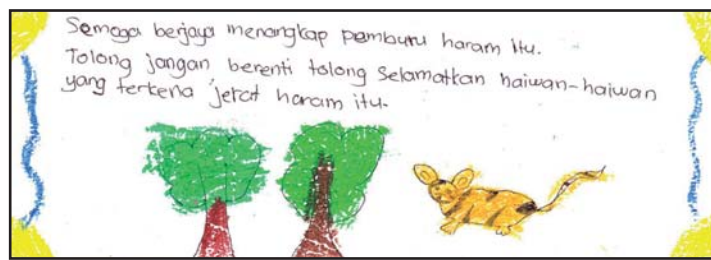 Semoga berjaya menangkap pemburu haram itu.
Tolong jangan berenti tolong selamatkan haiwan-haiwan
yang terkena jerat haram itu.